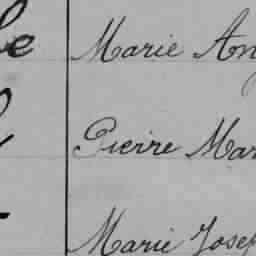 le Marie An
Pierre Mar
Marie Josep